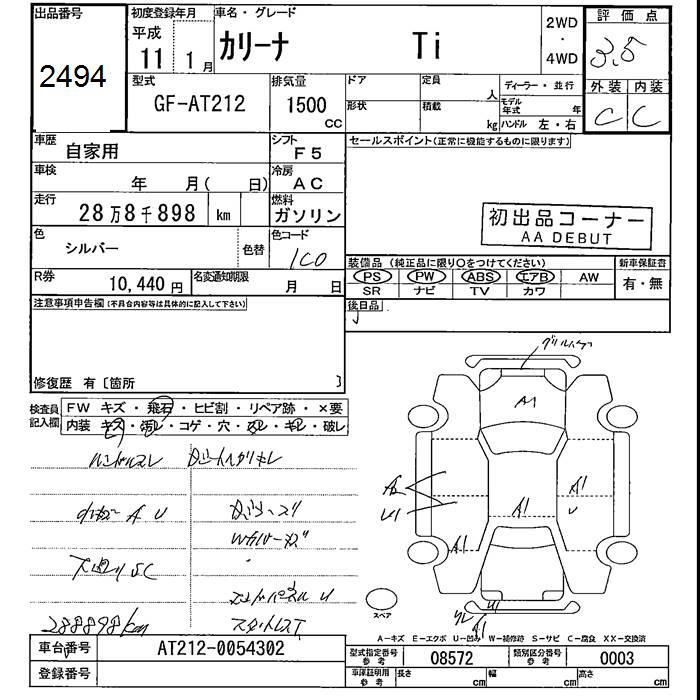 出品番号
2494
初度登録年月
平成
11 1月
車名・グレード
カリーナ Ti
2WD
・
4WD
評価点
3.5
外装 内装
C C
型式
GF-AT212
排気量
1500
CC
ドア 定員 人
形状 積載 kg
ディーラー・並行
モデル年式 年
ハンドル 左・右
車歴
自家用
シフト
F5
セールスポイント(正常に機能するものに限ります)
車検
年 月( 日)
冷房
AC
走行
28万8千898 km
燃料
ガソリン
初出品コーナー
AA DEBUT
色
シルバー
色替
色コード
1C0
装備品(純正品に限り○をつけてください)
PS PW ABS エアB AW
SR ナビ TV カワ
新車保証書
有・無
R券
10,440円
名変通知期限
月 日
後日品
注意事項申告欄(不具合内容等は具体的に記入して下さい)
修復歴 有〔箇所 〕
検査員記入欄
FW キズ・飛石・ヒビ割・リペア跡・×要
内装 キズ・汚レ・コゲ・穴・スレ・キレ・破レ
ハンドルスレ
A U
288898km
A1
A1
A1
A1
U
A2
U1
A1
スペア
A−キズ E−エクボ U−凹み W−補修跡 S−サビ C−腐食 XX−交換済
車台番号
AT212-0054302
登録番号
型式指定番号 参考
08572
類別区分番号 参考
0003
車庫証明用 参考
長さ cm 幅 cm 高さ cm